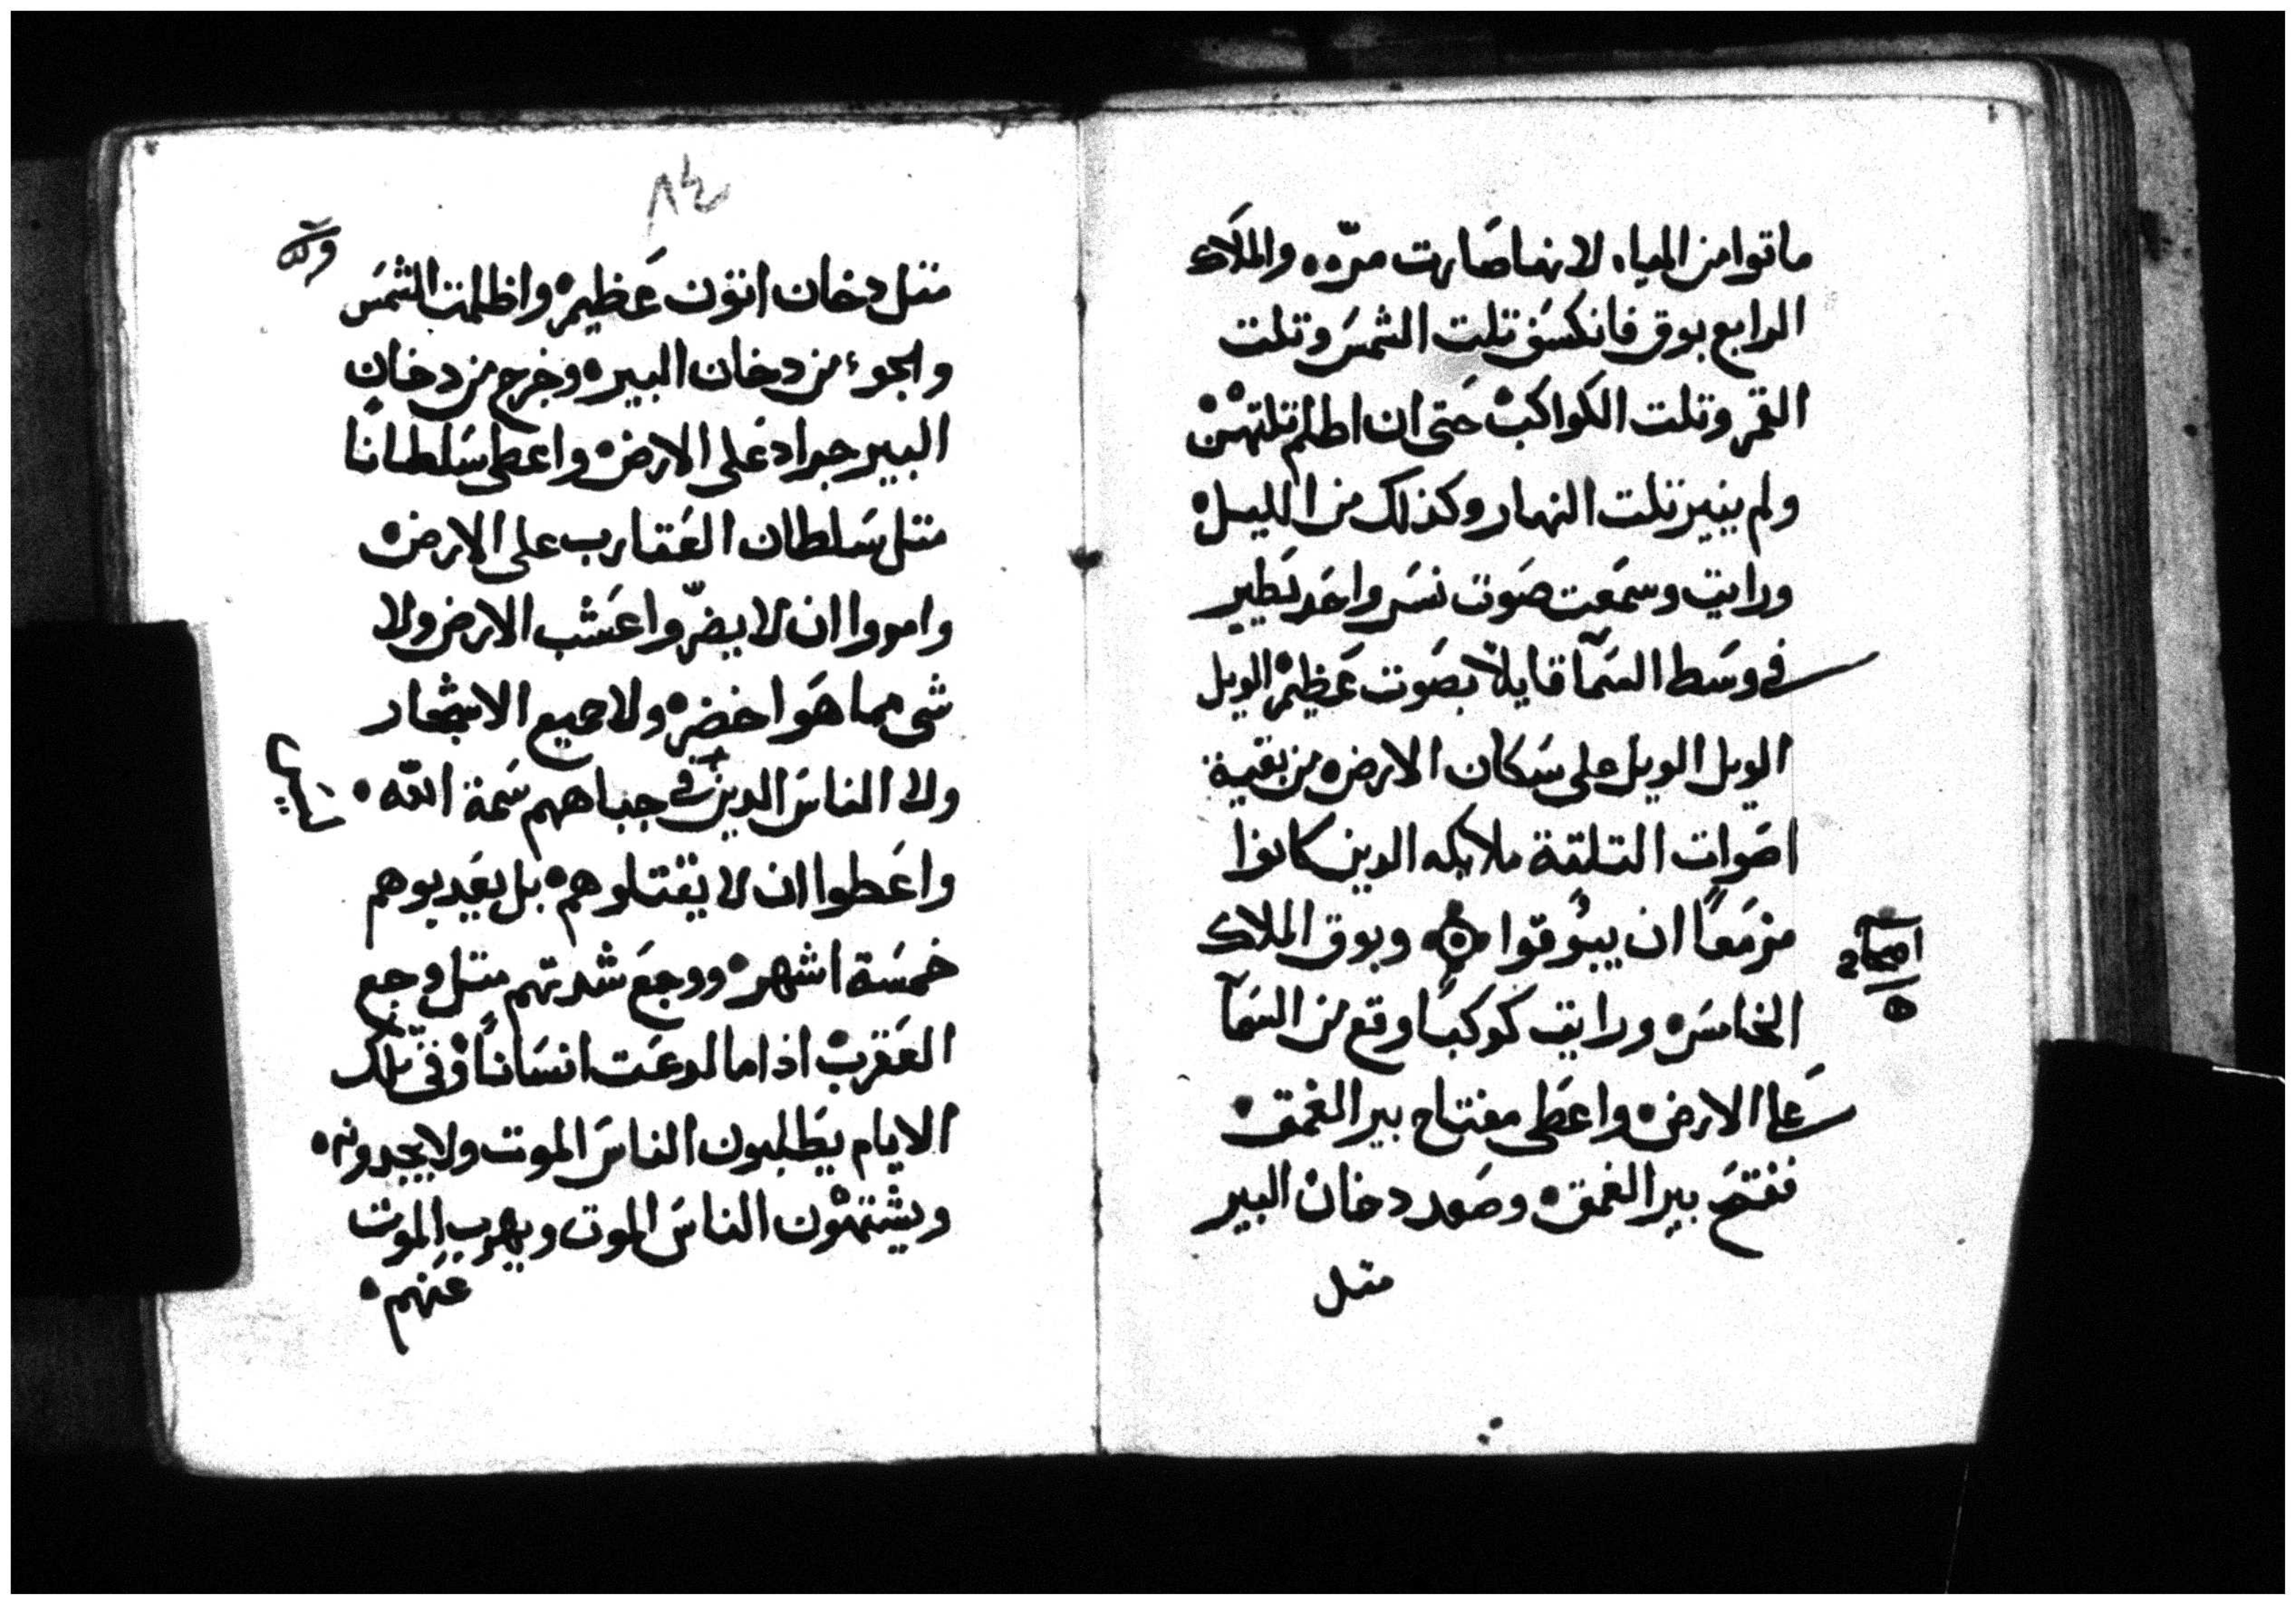 ماتوا من المياه لانها صارت مرّه ه والملاك
الرابع بوق فانكسف تلت الشمس وتلت
القمر وتلت الكواكب حتى ان اظلم تلتهن
ولم ينير تلت النهار وكذلك من الليل ه
ورايت وسمعت صوت نسر واحد يطير
في وسط السمآ قايلاً بصوت عظيم الويل
الويل الويل على سكان الارض ه من بقية
اصوات التلتة ملايكه الدين كانوا
مزمعاً ان يبوقوا وبوق الملاك
اصحاح
٥
الخامس ه ورايت كوكباً وقع من السمآ
علي الارض ه واعطى مفتاح بير الغمق ه
ففتح بير الغمق ه وصعد دخان البير
متل
٨٤
متل دخان اتون عظيم ه واظلمت الشمس
والجوء من دخان البير ه وخرج من دخان
البير جراد على الارض ه واعطى سلطاناً
متل سلطان العقارب على الارض ه
وامروا ان لا يضرّوا عشب الارض ولا
شى مما هوا خضر ه ولا جميع الاشجار
ولا الناس الدين في جباههم سمة الله ه
واعطوا ان لا يقتلوهم ه بل يعدبوهم
خمسة اشهر ه ووجع شدتهم متل وجع
العقرب اذا ما لدعت انساناً وفي تلك
الايام يطلبون الناس الموت ولا يجدونه ه
ويشتهون الناس الموت ويهرب الموت
عنهم ه